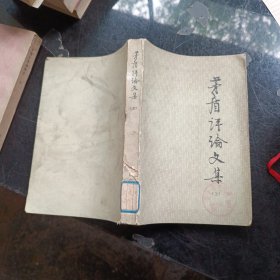 茅盾评论文集
茅盾评论文集